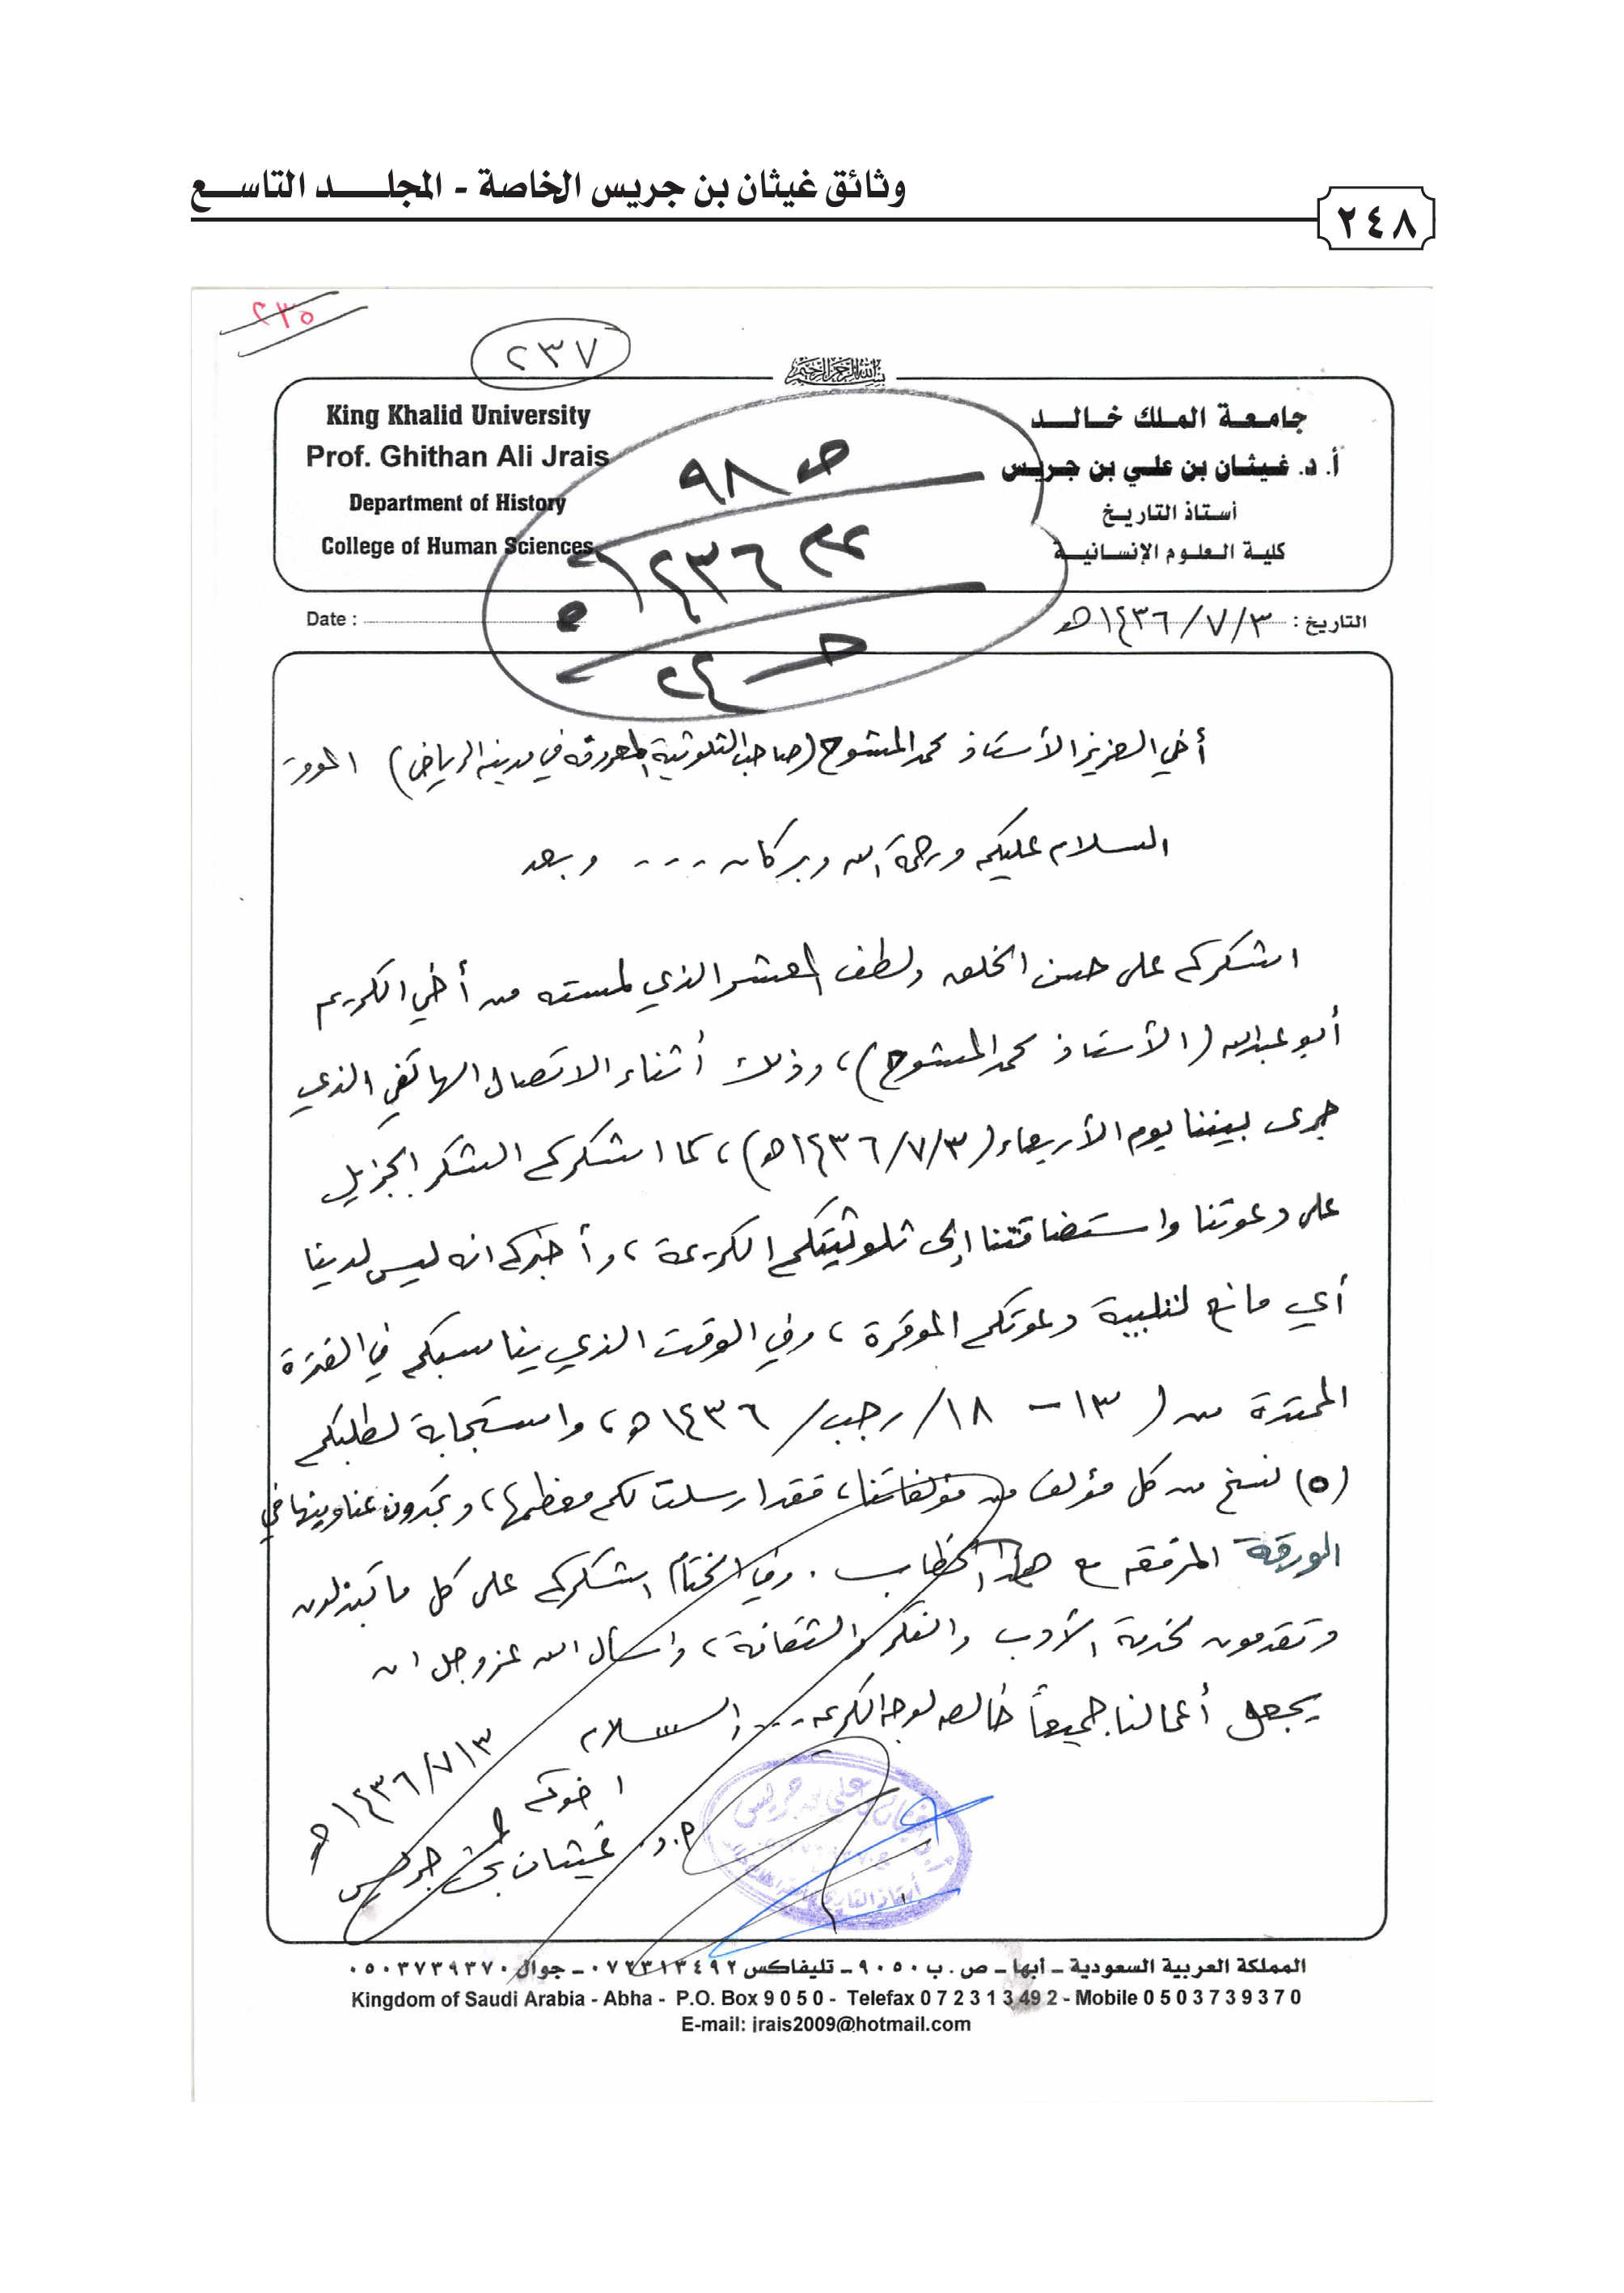 وثائق غيثان بن جريس الخاصة - المجلد التاسع
٢٤٨
٢٣٥
٢٣٧
بسم الله الرحمن الرحيم
جامعة الملك خالد
أ. د. غيثان بن علي بن جريس
أستاذ التاريخ
كلية العلوم الإنسانية
King Khalid University
Prof. Ghithan Ali Jrais
Department of History
College of Human Sciences
ص ٩٨
١٤٣٦
التاريخ : ١٤٣٦/٧/٣هـ
Date :
أخي العزيز الأستاذ محمد المشوح (صاحب الثلوثية المعروفة في مدينة الرياض) الموقر
السلام عليكم ورحمة الله وبركاته ... وبعد
اشكركم على حسن الخلق ولطف المعشر الذي لمسته من أخي الكريم
أبو عبدالله (الأستاذ محمد المشوح)، وذلك أثناء الاتصال الهاتفي الذي
جرى بيننا يوم الأربعاء (١٤٣٦/٧/٣هـ)، كما اشكركم الشكر الجزيل
على دعوتنا واستضافتنا إلى ثلوثيتكم الكريمة، وأخبركم انه ليس لدينا
أي مانع لتلبية دعوتكم الموقرة، وفي الوقت الذي يناسبكم في الفترة
الممتدة من (١٣ - ١٨/رجب/١٤٣٦هـ)، واستجابة لطلبكم
(٥) نسخ من كل مؤلف من مؤلفاتنا، فقد ارسلت لكم معظمها، وتجدون عناوينها في
الورقة المرفقه مع هذا الخطاب. وفي الختام اشكركم على كل ما تبذلون
وتقدمون لخدمة الأدب والفكر والثقافة، واسأل الله عزوجل ان
يجعل أعمالنا جميعاً خالصه لوجهه الكريم ... والسلام
١٤٣٦/٧/٣هـ
اخوكم
أ.د. غيثان بن علي بن جريس
المملكة العربية السعودية - أبها - ص . ب ٩٠٥٠ - تليفاكس ٠٧٢٣١٣٤٩٢ - جوال ٠٥٠٣٧٣٩٣٧٠
Kingdom of Saudi Arabia - Abha - P.O. Box 9 0 5 0 - Telefax 0 7 2 3 1 3 4 9 2 - Mobile 0 5 0 3 7 3 9 3 7 0
E-mail: jrais2009@hotmail.com